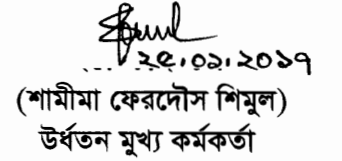 ২৫.০১.২০১৭
(শামীমা ফেরদৌস শিমুল)
উর্ধতন মুখ্য কর্মকর্তা